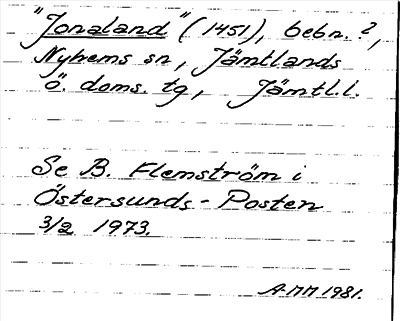 "Jonaland" (1451), bebn. ?,
Nyhems sn, Jämtlands
ö. doms. tg, Jämtl.l.
Se B. Flemström i
Östersunds-Posten
3/2 1973.
A-MM 1981.